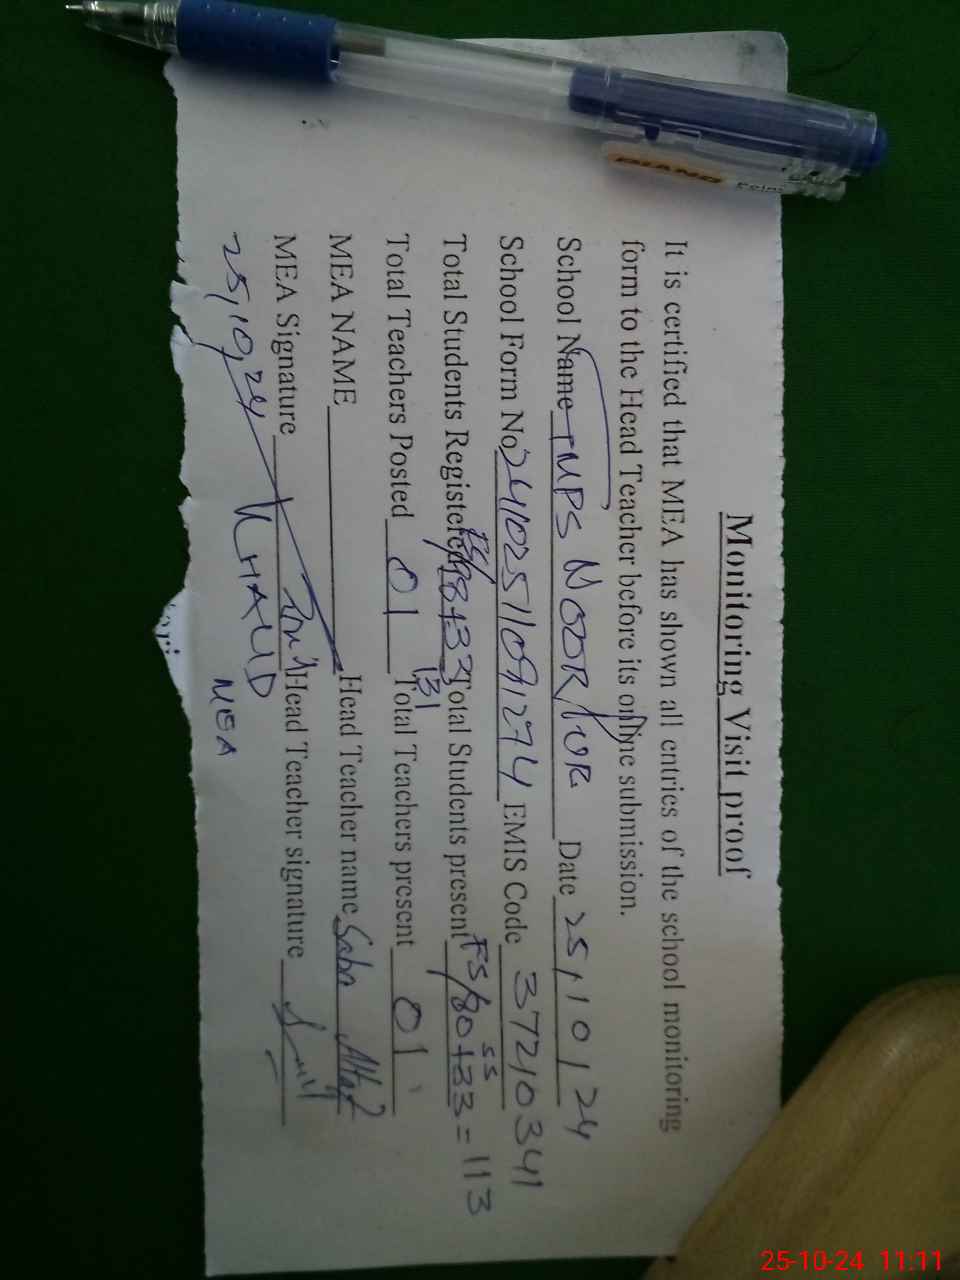 Monitoring Visit proof
It is certified that MEA has shown all entries of the school monitoring
form to the Head Teacher before its online submission.
School Name TMPS NOOR PUR Date 25,10,24
School Form No 2410251109,1274 EMIS Code 37210341
Total Students Registered FS/98+33 Total Students present FS/80+33=113
SS
131
Total Teachers Posted 01 Total Teachers present 01
MEA NAME Head Teacher name Saba Altaf
MEA Signature Head Teacher signature
25,10,24 KHALID
MEA
PIANO
25-10-24 11:11